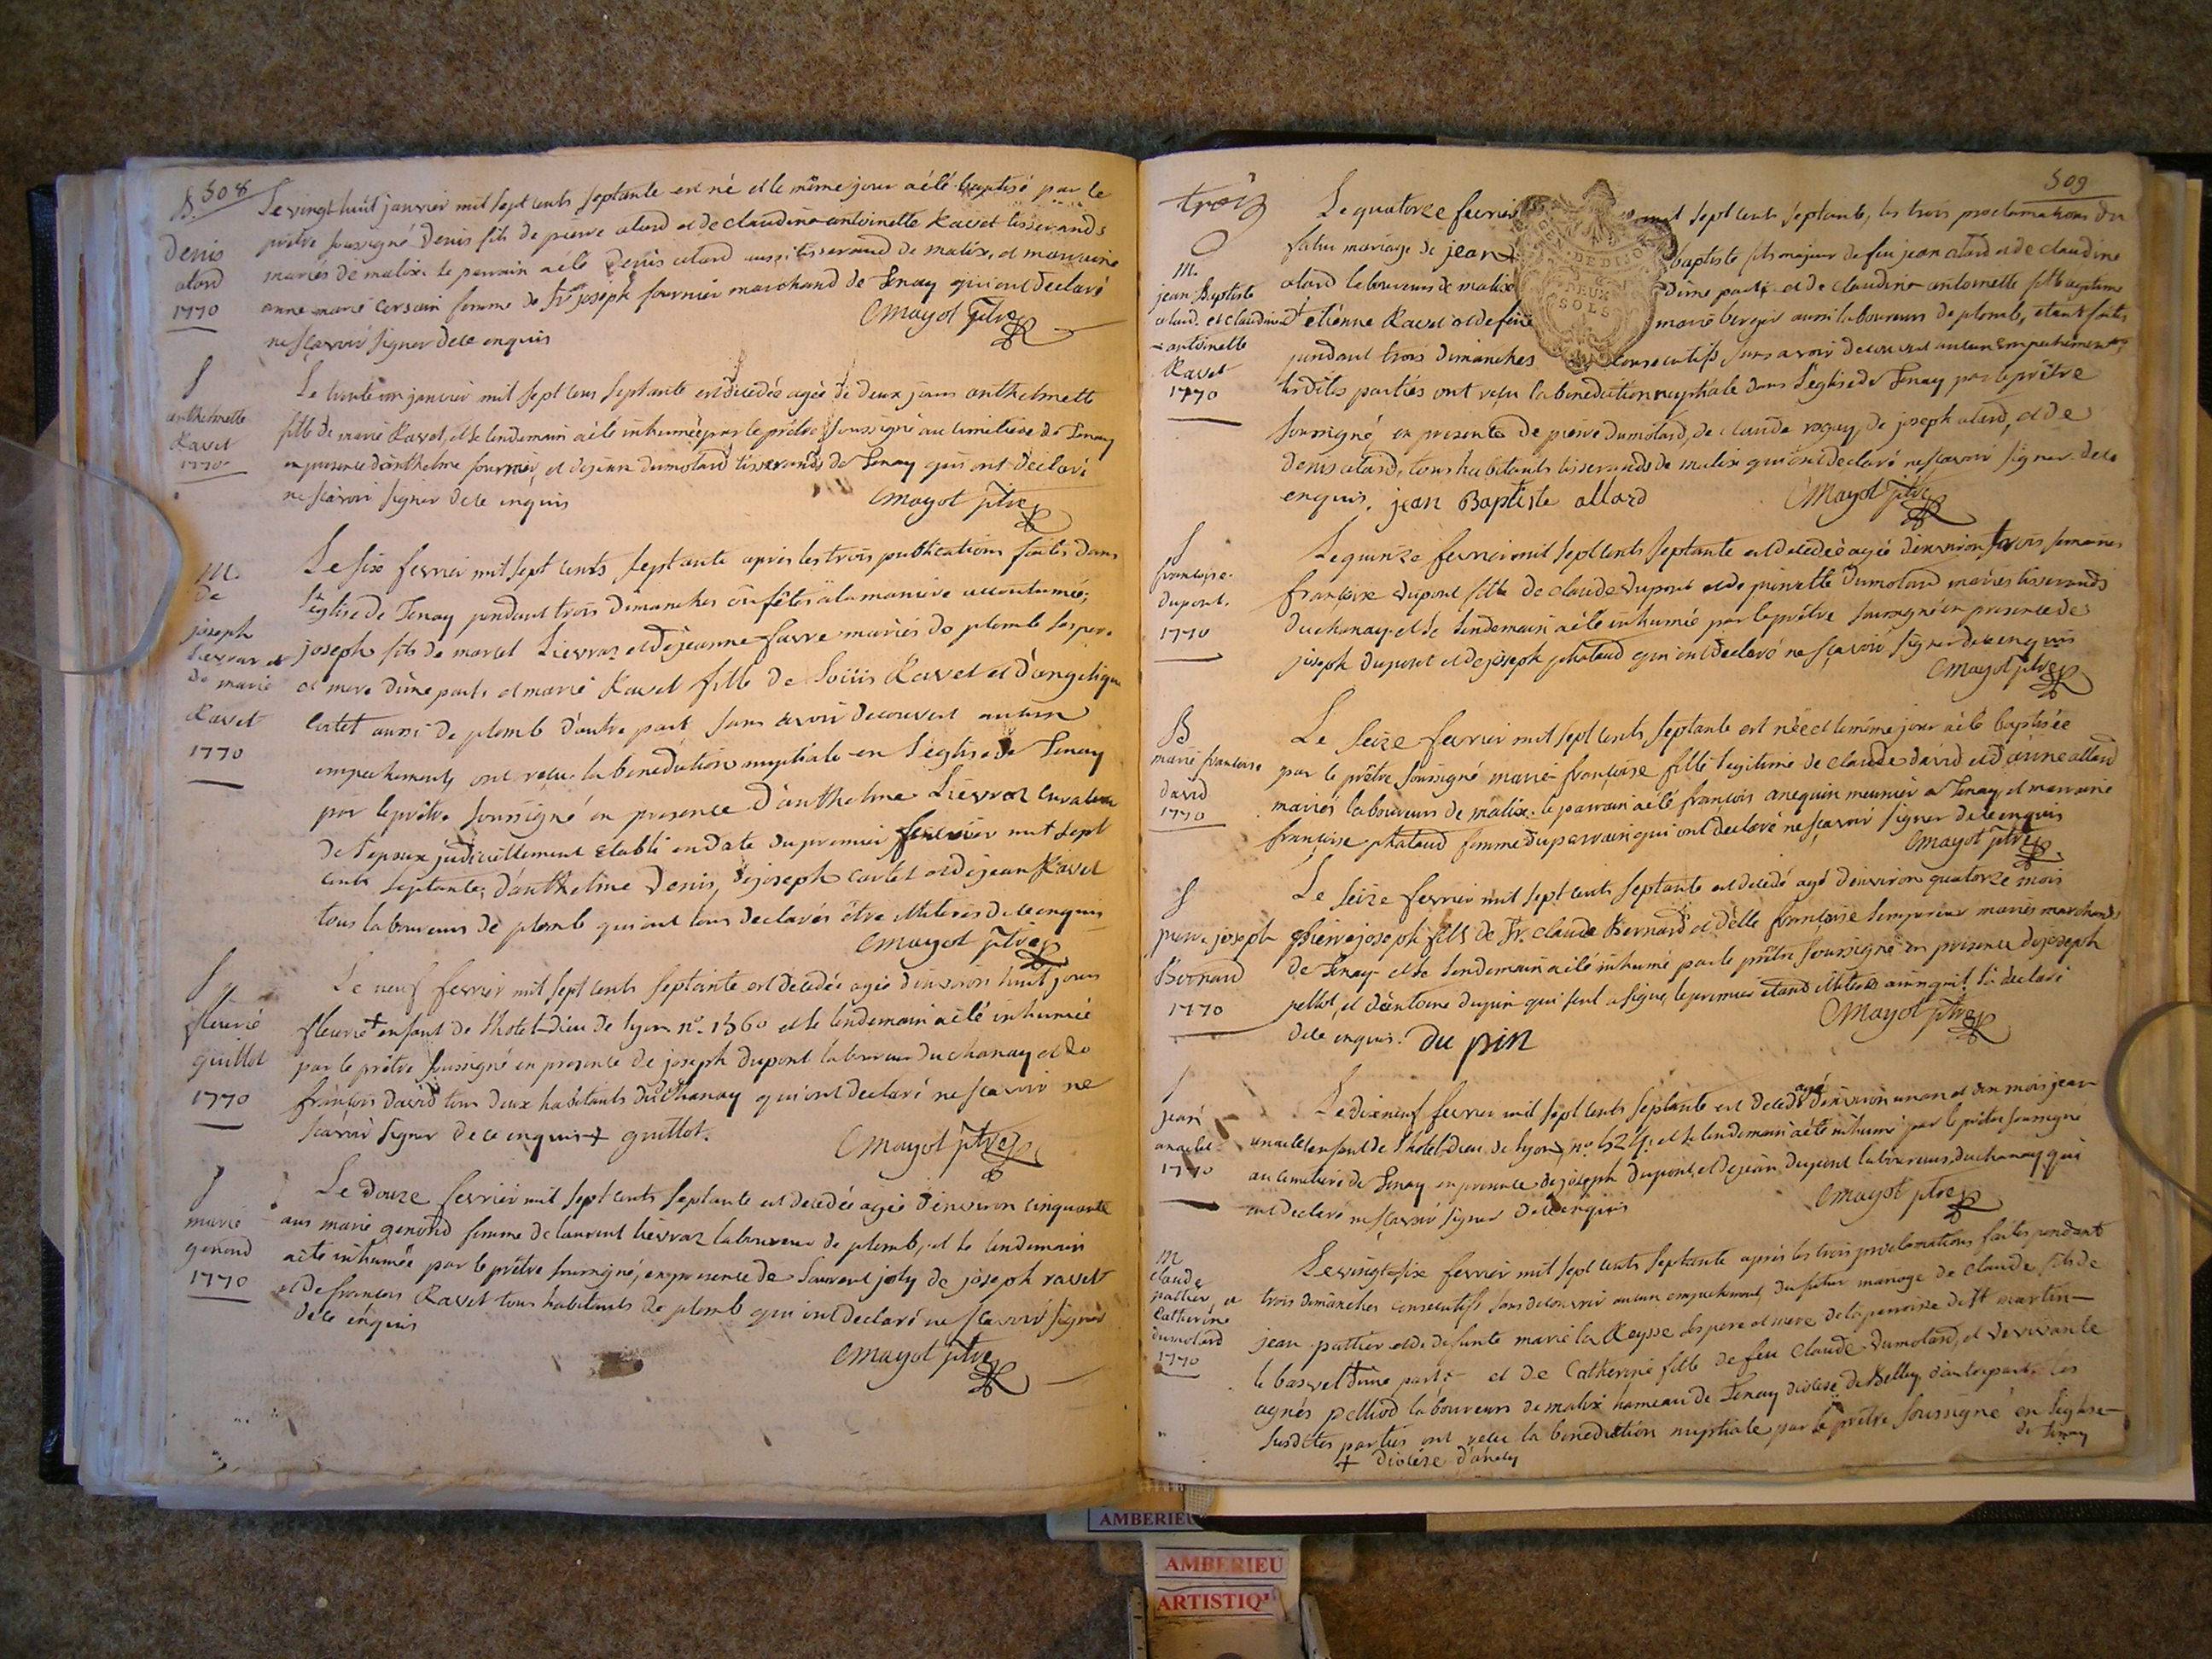 508
B.
Denis
alard
1770
Le vingt huit janvier mil sept cents septante est né et le même jour a été baptisé par le
prêtre soussigné Denis fils de pierre alard et de claudine antoinette Ravet tisserands
mariés de malix. le parrain a été Denis alard aussi tisserand de malix, et marraine
anne marie cersain femme de Sr joseph fournier marchand de Tenay qui ont declaré
ne sçavoir signer de ce enquis Mayot ptre
S
anthelmette
Ravet
1770
Le trente un janvier mil sept cens septante est decedée agée de deux jours anthelmette
fille de marie Ravet, et le lendemain a été inhumée par le prêtre soussigné au cimetiere de Tenay
en presence d'anthelme fournier, et de jean dumolard tisserands de Tenay qui ont declaré
ne sçavoir signer de ce enquis Mayot ptre
M.
de
joseph
Lievraz et
de marie
Ravet
1770
Le six fevrier mil sept cents septante après les trois publications faites dans
l'église de Tenay pendant trois dimanches ou fêtes à la maniere accoutumée;
joseph fils de marcel Lievraz et de jeanne favre mariés de plomb ses pere
et mere d'une part, et marie Ravet fille de Loüis Ravet et d'angelique
Carlet aussi de plomb d'autre part sans avoir decouvert aucun
empechements ont reçu la benediction nuptiale en l'église de Tenay
par le prêtre soussigné en presence d'anthelme Lievraz curateur
de l'epoux judiciellement etabli en date du premier fevrier mil sept
cents septante; d'anthelme Denis, de joseph carlet et de jean Ravet
tous laboureurs de plomb qui ont tous declarés être illiterés de ce enquis
Mayot ptre
S
fleurie
guillot
1770
Le neuf fevrier mil sept cents septante est decedée agée d'environ huit jours
fleurie + enfant de l'hotel-dieu de lyon n° 1360 et le lendemain a été inhumée
par le prêtre soussigné en presence de joseph dupont laboureur du chanay et de
françois david tous deux habitants du chanay qui ont declaré ne sçavoir ne
scavoir signer de ce enquis + guillot. Mayot ptre
S
marie
genond
1770
Le douze fevrier mil sept cents septante est decedée agée d'environ cinquante
ans marie genond femme de laurent lievraz laboureur de plomb, et le lendemain
a été inhumée par le prêtre soussigné, en presence de Laurent joly de joseph ravet
et de françois Ravet tous habitants de plomb qui ont declaré ne scavoir signer
de ce enquis
Mayot ptre
509
trois
M.
jean Baptiste
alard. et claudine
antoinette
Ravet
1770
Le quatorze fevrier mil sept cents septante, les trois proclamations du
futur mariage de jean baptiste fils majeur de feu jean alard et de claudine
alard laboureurs de malix d'une part et de claudine antoinette fille legitime
d'etienne Ravet et de feüe marie berger aussi laboureurs de plomb, etant faites
pendant trois dimanches consecutifs sans avoir decouvert aucun empechements,
lesdites parties ont reçu la benediction nuptiale dans l'eglise de Tenay par le prêtre
soussigné, en presence de pierre dumolard, de claude rogay, de joseph alard, et de
denis alard, tous habitants tisserands de malix qui ont declaré ne scavoir signer de ce
enquis. jean Baptiste allard Mayot ptre
S
françoise
dupont.
1770
Le quinze fevrier mil sept cents septante est decedée agée d'environ trois semaines
françoise dupont fille de claude dupont et de pierrette dumolard mariés tisserands
du chanay et le lendemain a été inhumée par le prêtre soussigné en presence de
joseph dupont et de joseph phataud qui ont declaré ne sçavoir signer de ce enquis
Mayot ptre
B
marie francoise
david
1770
Le seize fevrier mil sept cents septante est née et le même jour a été baptisée
par le prêtre soussigné marie françoise fille legitime de claude david et d'anne allard
mariés laboureurs de malix. le parrain a été françois anequin meunier a Tenay, et marraine
françoise phataud femme du parrain qui ont declaré ne sçavoir signer de ce enquis
Mayot ptre
S
pierre joseph
Bernard
1770
Le seize fevrier mil sept cents septante est decedé agé d'environ quatorze mois
pierre joseph fils de Sr. claude Bernard et de delle françoise Tempereur mariés marchands
de Tenay et le lendemain a été inhumé par le prêtre soussigné en presence de joseph
pellot, et d'antoine dupin qui seul a signé, le premier etant illiteré ainsi qu'il l'a declaré
de ce enquis. du pin Mayot ptre
S
jean
anaclet
1770
Le dixneuf fevrier mil sept cents septante est decedé agé d'environ un an et dix mois jean
anaclet enfant de l'hotel-dieu de lyon, n° 524. et le lendemain a été inhumé par le prêtre soussigné
au cimetiere de Tenay en presence de joseph dupont, et de jean dupont laboureurs du chanay qui
ont declaré ne scavoir signer de ce enquis Mayot ptre
M
claude
pattier et
Catherine
dumolard
1770
Le vingt-six fevrier mil sept cents septante après les trois proclamations faites pendant
trois dimanches consecutifs sans decouvrir aucun empechement, du futur mariage de claude fils de
jean pattier et de defunte marie la Reysse ses pere et mere de la paroisse de St martin
le bas vel d'une part + et de Catherine fille de feu claude Dumolard, et de vivante
agnés pelliod laboureurs de malix hameau de Tenay diocese de Belley d'autre part. les
susdites parties ont reçu la benediction nuptiale par le prêtre soussigné en l'eglise
de Tenay
+ diocèse d'
AMBERIEU
AMBERIEU
ARTISTIQ